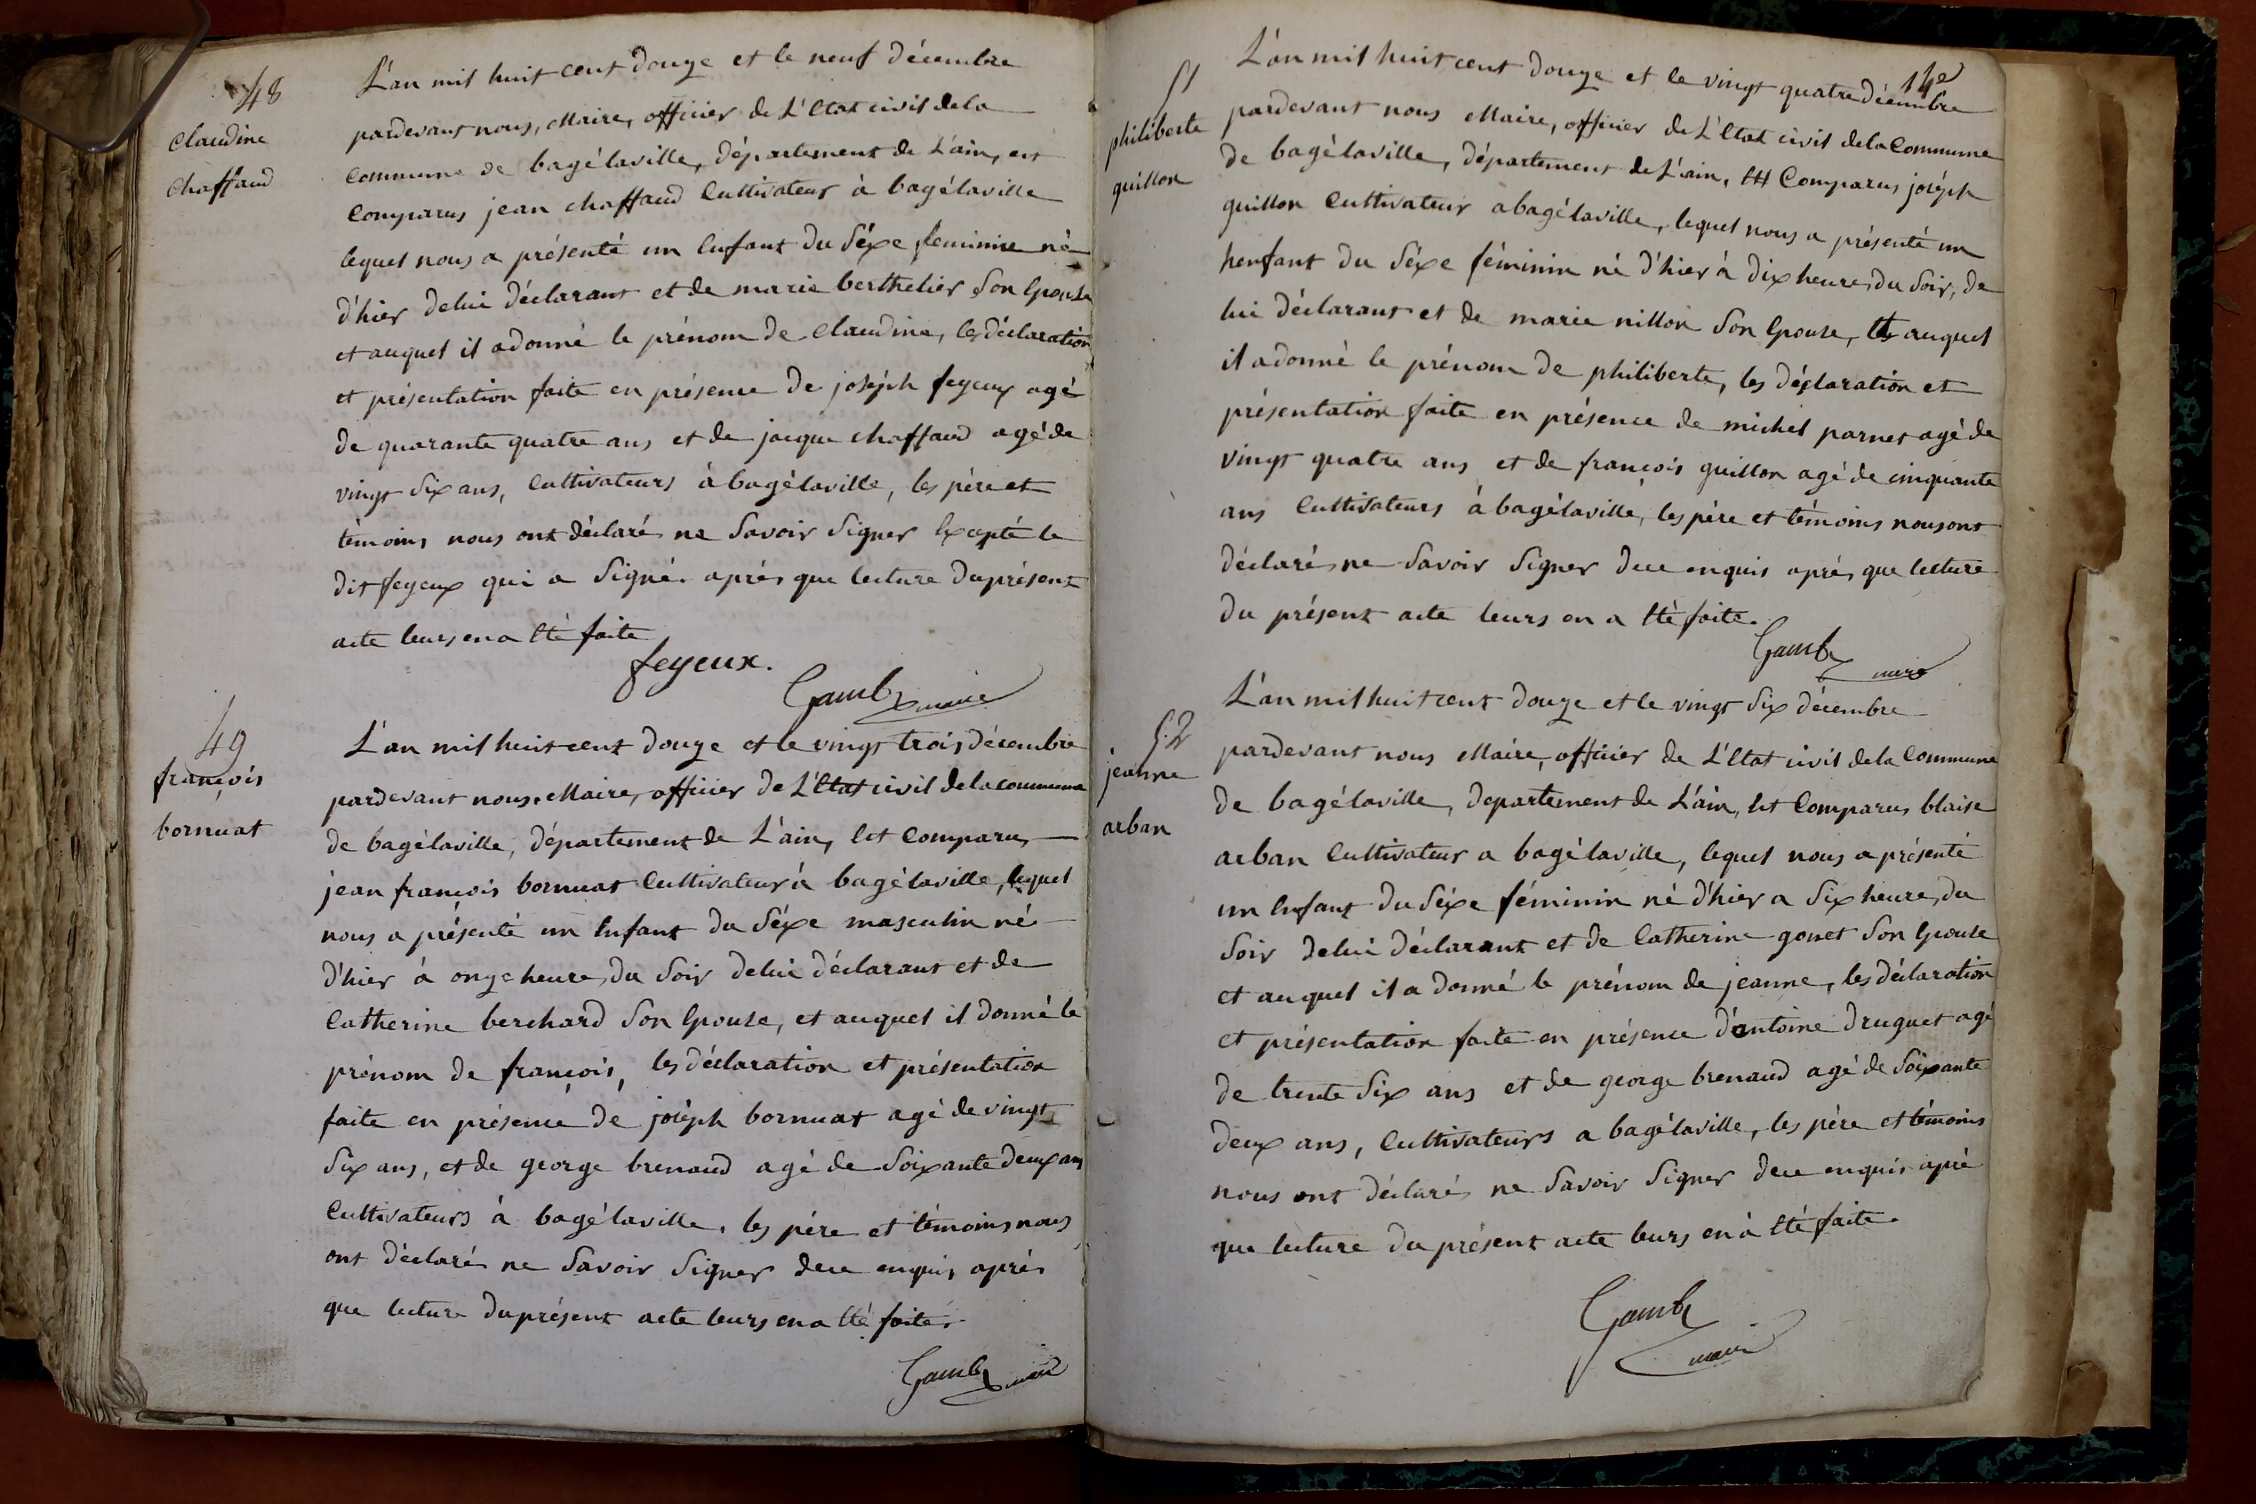 48
claudine
chaffaud
L'an mil huit cent douze et le neuf décembre
pardevant nous, Maire, officier de L'Etat civil de la
commune de bagélaville, département de L'ain, est
Comparus jean chaffaud Cultivateur à bagélaville
lequel nous a présenté un Enfant du Séxe feminine né
d'hier delui déclarant et de marie berthelier Son Epouse
et auquel il adonné le prénom de claudine, les déclaration
et présentation faite en présence de joséph feyeux agé
de quarante quatre ans et de jacque chaffaud agé de
vingt Six ans, Cultivateurs à bagélaville, les père et
témoins nous ont déclarés ne Savoir Signer Excepté le
dit feyeux qui a Signé. après que lecture du présent
acte leurs en a Eté faite
feyeux.
Gamb maire
49
françois
bornuat
L'an mil huit cent douze et le vingt trois décembre
pardevant nous, Maire, officier de L'Etat civil de la commune
de bagélaville, département de L'ain, Est Comparus
jean françois bornuat Cultivateur à bagélaville, lequel
nous a présenté un Enfant du Séxe masculin né
d'hier à onze heures du Soir delui déclarant et de
Catherine berchard Son Epouse, et auquel il donné le
prénom de françois, les déclaration et présentation
faite en présence de joséph bornuat agé de vingt
Six ans, et de george brenaud agé de Soixante deux ans
Cultivateurs à bagélaville, les père et témoins nous
ont déclarés ne Savoir Signer dece enquis après
que lecture du présent acte leurs en a Eté faite.
Gamb maire
14e
51
philiberte
guillon
L'an mil huit cent douze et le vingt quatre décembre
pardevant nous Maire, officier de L'Etat civil de la Commune
de bagélaville, département de L'ain, Est Comparus joséph
guillon Cultivateur a bagélaville, lequel nous a présenté un
henfant du Séxe féminin né d'hier à dix heures du Soir, de
lui déclarant et de marie nillon Son Epouse, Et auquel
il adonné le prénom de philiberte, les déclaration et
présentation faite en présence de michel parnet agé de
vingt quatre ans et de françois guillon agé de cinquante
ans Cultivateurs à bagélaville, les père et témoins nous ont
déclarés ne Savoir Signer dece enquis après que lecture
du présent acte leurs en a Eté faite.
Gamb maire
52
jeanne
arban
L'an mil huit cent douze et le vingt Six décembre
pardevant nous Maire, officier de L'Etat civil de la Commune
de bagélaville, departement de L'ain, Est Comparus blaise
arban Cultivateur a bagélaville, lequel nous a présenté
un Enfant du Séxe féminin né d'hier a Six heures du
Soir delui déclarant et de Catherine gonet Son Epouse
et auquel il a donné le prénom de jeanne, les déclaration
et présentation faite en présence d'antoine druguet agé
de trente Six ans et de george brenaud agé de Soixante
deux ans, Cultivateurs a bagélaville, les père et témoins
nous ont déclarés ne Savoir Signer dece enquis aprè
que lecture du présent acte leurs en à Eté faite.
Gamb
maire